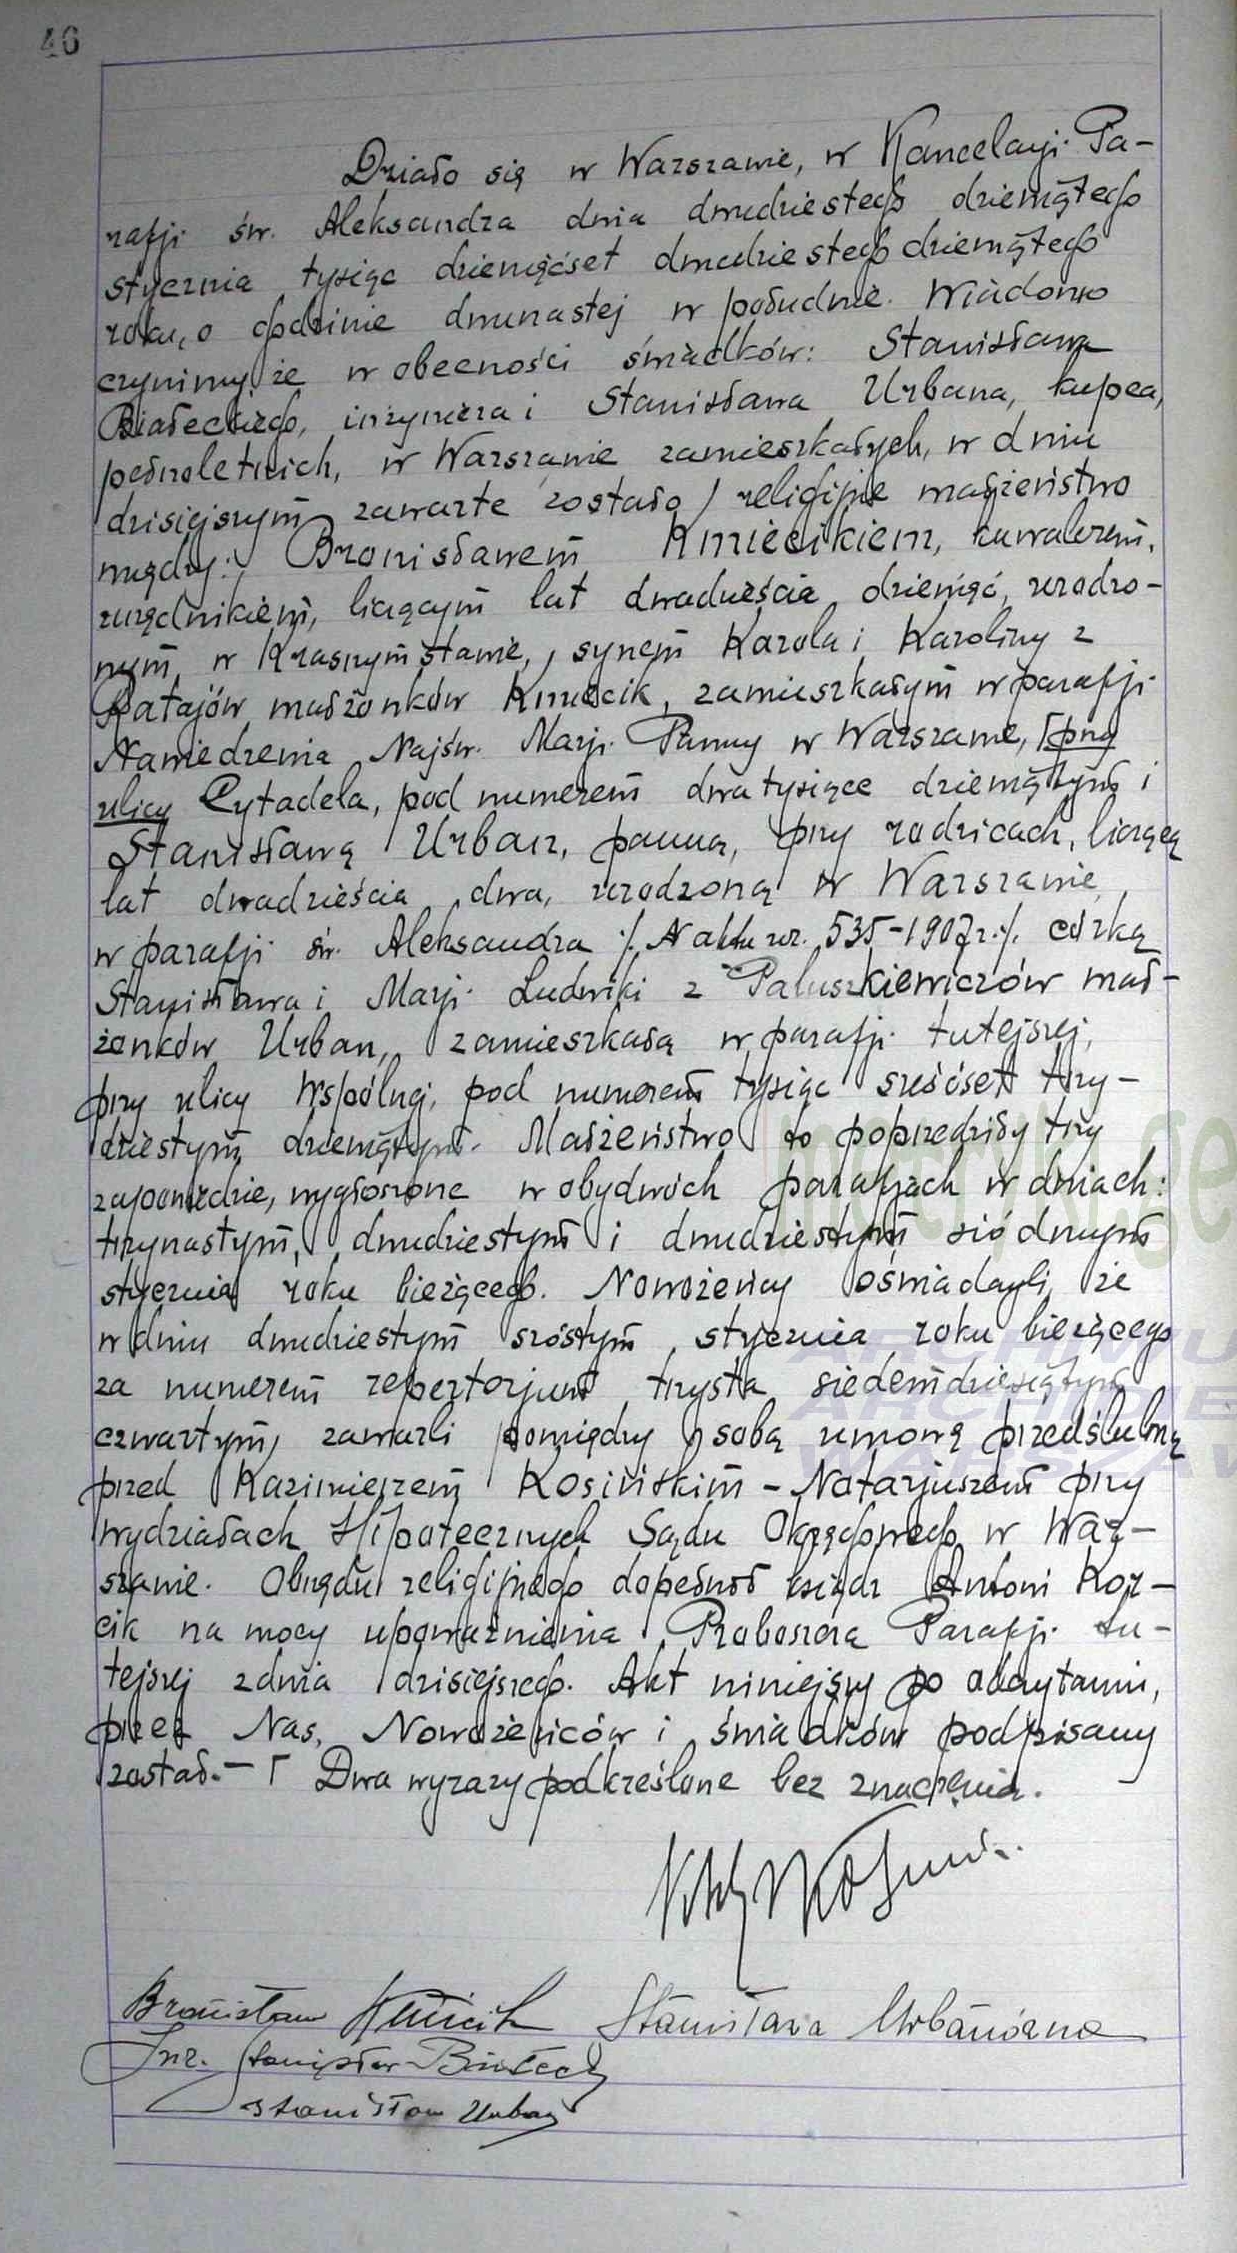 46
Działo się w Warszawie, w Kancelarji Pa-
rafji św. Aleksandra dnia dwudziestego dziewiątego
stycznia tysiąc dziewięćset dwudziestego dziewiątego
roku, o godzinie dwunastej w południe. Wiadomo
czynimy, że w obecności świadków: Stanisława
Białeckiego, inżyniera i Stanisława Urbana, kupca,
pełnoletnich, w Warszawie zamieszkałych, w dniu
dzisiejszym zawarte zostało religijne małżeństwo
między: Bronisławem Kmiecikiem, kawalerem,
urzędnikiem, liczącym lat dwadzieścia dziewięć, urodzo-
nym w Krasnymstawie, synem Karola i Karoliny z
Ratajów małżonków Kmiecik, zamieszkałym w parafji
Nawiedzenia Najśw. Marji Panny w Warszawie, ⌈przy
ulicy Cytadela, pod numerem dwa tysiące dziewiątym i
Stanisławą Urban, panną, przy rodzicach, liczącą
lat dwadzieścia dwa, urodzoną w Warszawie
w parafji św. Aleksandra /. N aktu ur. 535-1907 r. /. córką
Stanisława i Marji Ludwiki z Paluszkiewiczów mał-
żonków Urban, zamieszkałą w parafji tutejszej,
przy ulicy Wspólnej, pod numerem tysiąc sześćset trzy-
dziestym dziewiątym. Małżeństwo to poprzedziły trzy
zapowiedzie, wygłoszone w obydwóch parafjach w dniach:
trzynastym, dwudziestym i dwudziestym siódmym
stycznia roku bieżącego. Nowożeńcy oświadczyli, że
w dniu dwudziestym szóstym stycznia roku bieżącego
za numerem repertorjum trzysta siedemdziesiątym
czwartym, zawarli pomiędzy sobą umowę przedślubną
przed Kazimierzem Kosińskim - Notarjuszem przy
wydziałach Hipotecznych Sądu Okręgowego w War-
szawie. Obrzędu religijnego dopełnił ksiądz Antoni Kor-
cik na mocy upoważnienia Proboszcza Parafji tu-
tejszej z dnia dzisiejszego. Akt niniejszy po odczytaniu,
przez Nas, Nowożeńców i świadków podpisany
został. — ⌈ Dwa wyrazy podkreślone bez znaczenia.
Bronisław Kmiecik Stanisława Urbanówna
Inż. Stanisław Białecki
Stanisław Urban